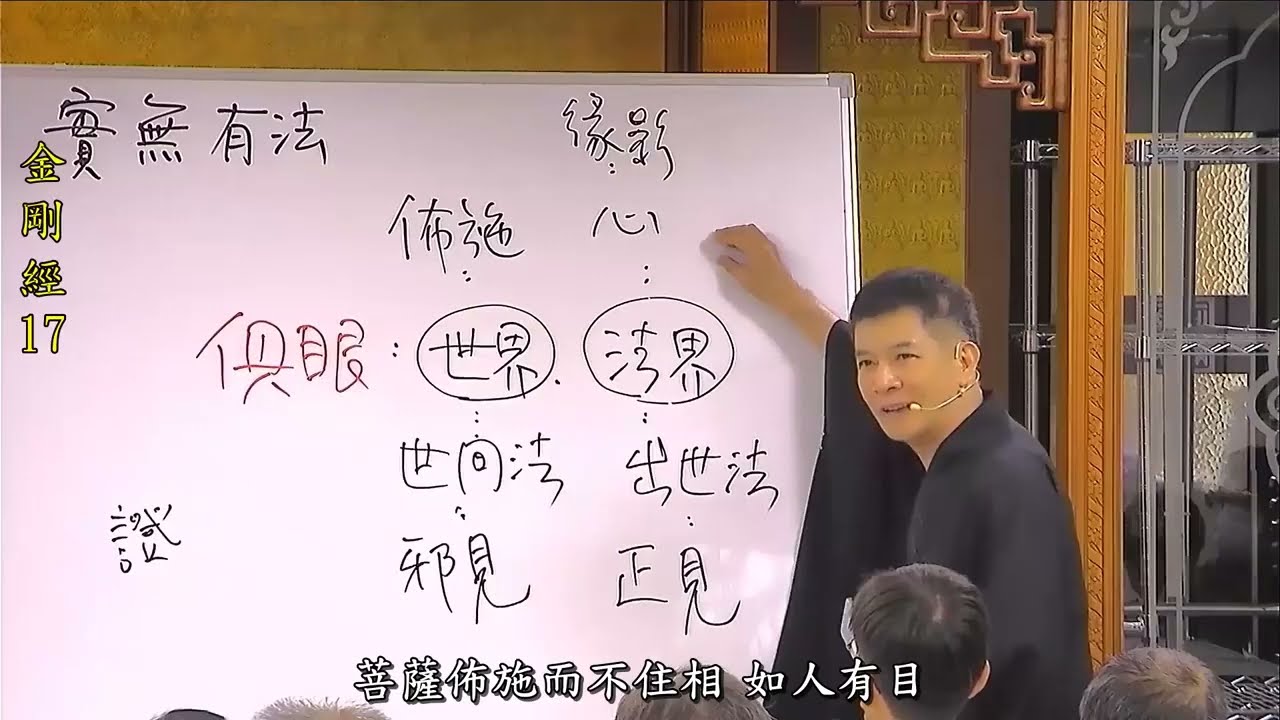 實無有法
緣影
金剛經17
佈施 心
俱眼：世界．法界
世间法 出世法
證
邪見 正見
菩薩佈施而不住相 如人有目